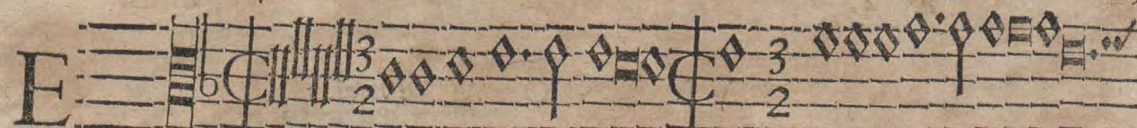 E 3 2 3 2